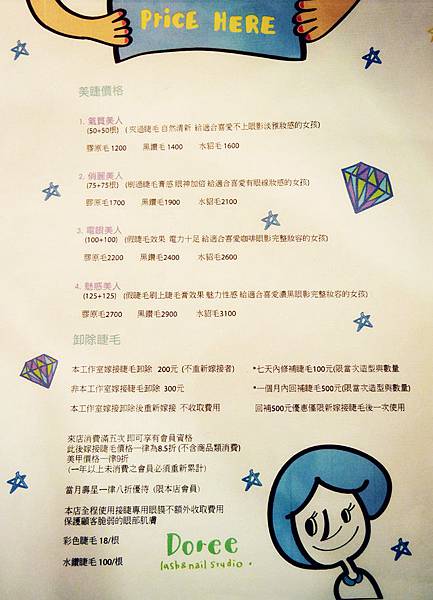 PRICE HERE
美睫價格
1. 氣質美人
(50+50根) (夾過睫毛 自然清新 給適合喜愛不上眼影淡雅妝感的女孩)
膠原毛1200 黑鑽毛1400 水貂毛1600
2. 俏麗美人
(75+75根) (刷過睫毛膏感 眼神加倍 給適合喜愛有眼線妝感的女孩)
膠原毛1700 黑鑽毛1900 水貂毛2100
3. 電眼美人
(100+100) (假睫毛效果 電力十足 給適合喜愛咖啡眼影完整妝容的女孩)
膠原毛2200 黑鑽毛2400 水貂毛2600
4. 魅惑美人
(125+125) (假睫毛刷上睫毛膏效果 魅力性感 給適合喜愛濃黑眼影完整妝容的女孩)
膠原毛2700 黑鑽毛2900 水貂毛3100
卸除睫毛
本工作室嫁接睫毛卸除 200元 (不重新嫁接者) *七天內修補睫毛100元(限當次造型與數量
非本工作室嫁接睫毛卸除 300元 *一個月內回補睫毛500元(限當次造型與數量
本工作室嫁接卸除後重新嫁接 不收取費用 回補500元優惠僅限新嫁接睫毛後一次使用
來店消費滿五次 即可享有會員資格
此後嫁接睫毛價格一律為8.5折 (不含商品類消費)
美甲價格一律9折
(一年以上未消費之會員必須重新累計)
當月壽星一律八折優待 (限本店會員)
本店全程使用接睫專用眼膜不額外收取費用
保護顧客脆弱的眼部肌膚
彩色睫毛 18/根
水鑽睫毛 100/根
Doree
lash&nail studio.